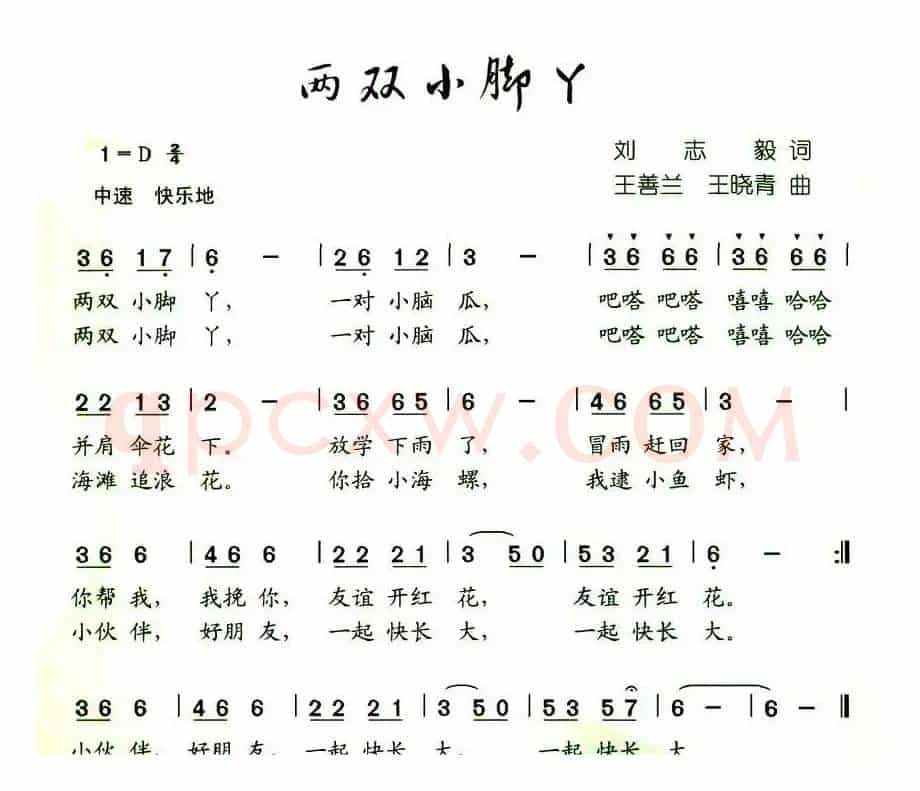 两双小脚丫
1=D 2/4
刘志毅 词
中速 快乐地
王善兰 王晓青 曲
36 17 | 6 - | 26 12 | 3 - | 36 66 36 66 |
两双 小脚 丫, 一对 小脑 瓜, 吧嗒 吧嗒 嘻嘻 哈哈
两双 小脚 丫, 一对 小脑 瓜, 吧嗒 吧嗒 嘻嘻 哈哈
22 13 | 2 - | 36 65 | 6 - | 46 65 | 3 - |
qpcxw.COM
并肩 伞花 下。 放学 下雨 了, 冒雨 赶回 家,
海滩 追浪 花。 你拾 小海 螺, 我逮 小鱼 虾,
36 6 | 46 6 | 22 21 | 3 50 | 53 21 | 6 - :‖
你帮 我, 我挽 你, 友谊 开红 花, 友谊 开红 花。
小伙 伴, 好朋 友, 一起 快长 大, 一起 快长 大。
36 6 | 46 6 | 22 21 | 3 50 | 53 57 | 6 - | 6 - ‖
小伙 伴, 好朋 友, 一起 快长 大, 一起 快长 大